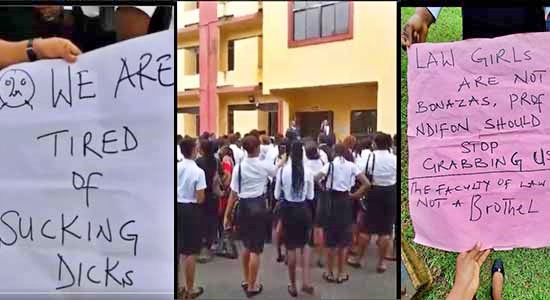 WE ARE
TIRED
OF
SUCKING
DICKS
LAW GIRLS
ARE NOT
BONAZAS, PROF
NDIFON SHOULD
STOP
GRABBING US
THE FACULTY OF LAW
NOT A BROTHEL